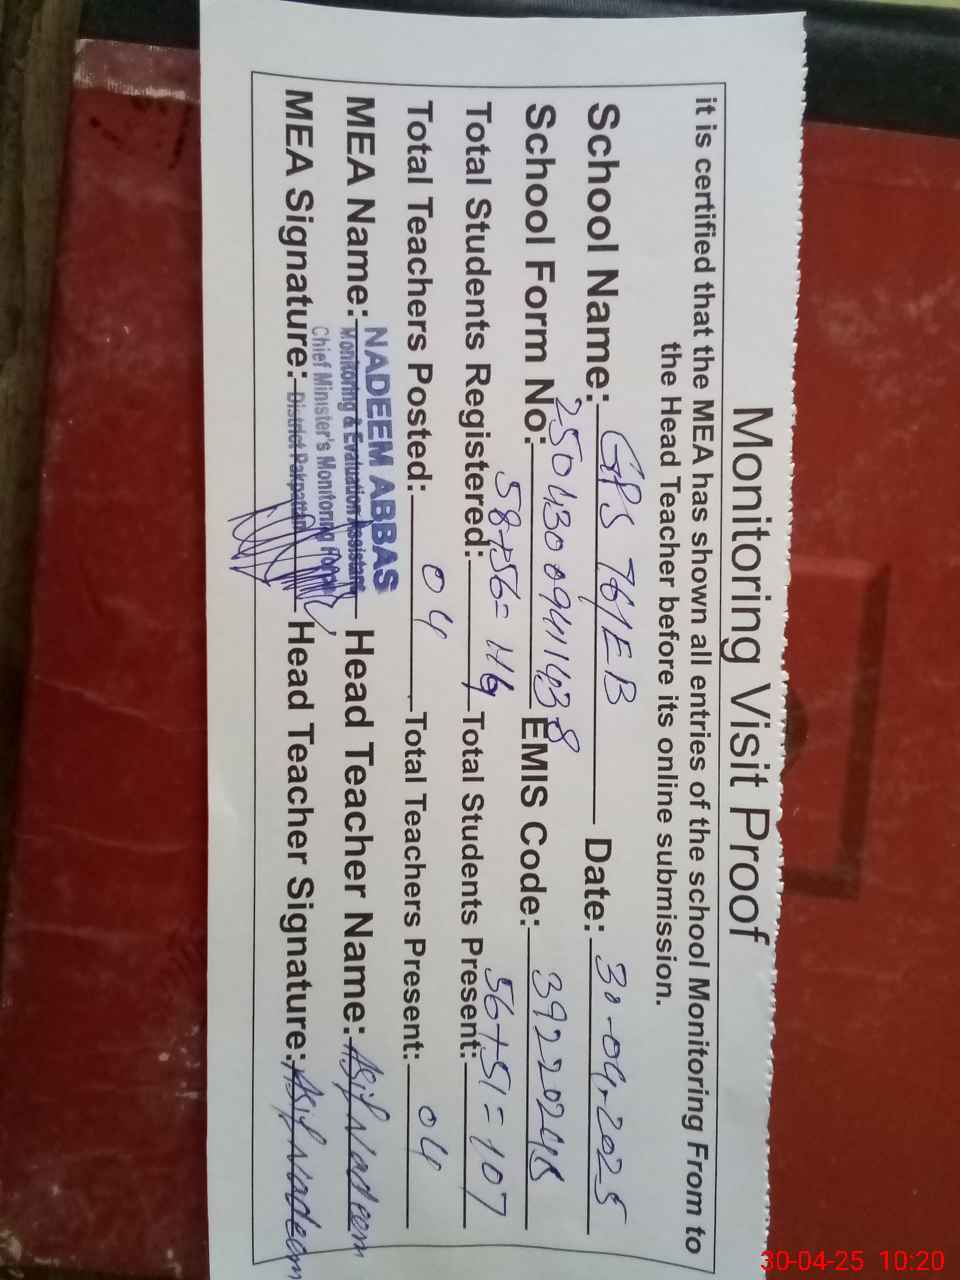 Monitoring Visit Proof
it is certified that the MEA has shown all entries of the school Monitoring From to
the Head Teacher before its online submission.
School Name: GPS 76/EB Date: 30-04-2025
School Form No: EMIS Code:
Total Students Registered: 58+56= Total Students Present: 56+51=107
Total Teachers Posted: 04 Total Teachers Present: 04
MEA Name: NADEEM ABBAS Head Teacher Name: Asif Nadeem
Monitoring & Evaluation Assistant
Chief Minister's Monitoring Force
District Pakpattan
MEA Signature: Head Teacher Signature: Asif Nadeem
30-04-25 10:20